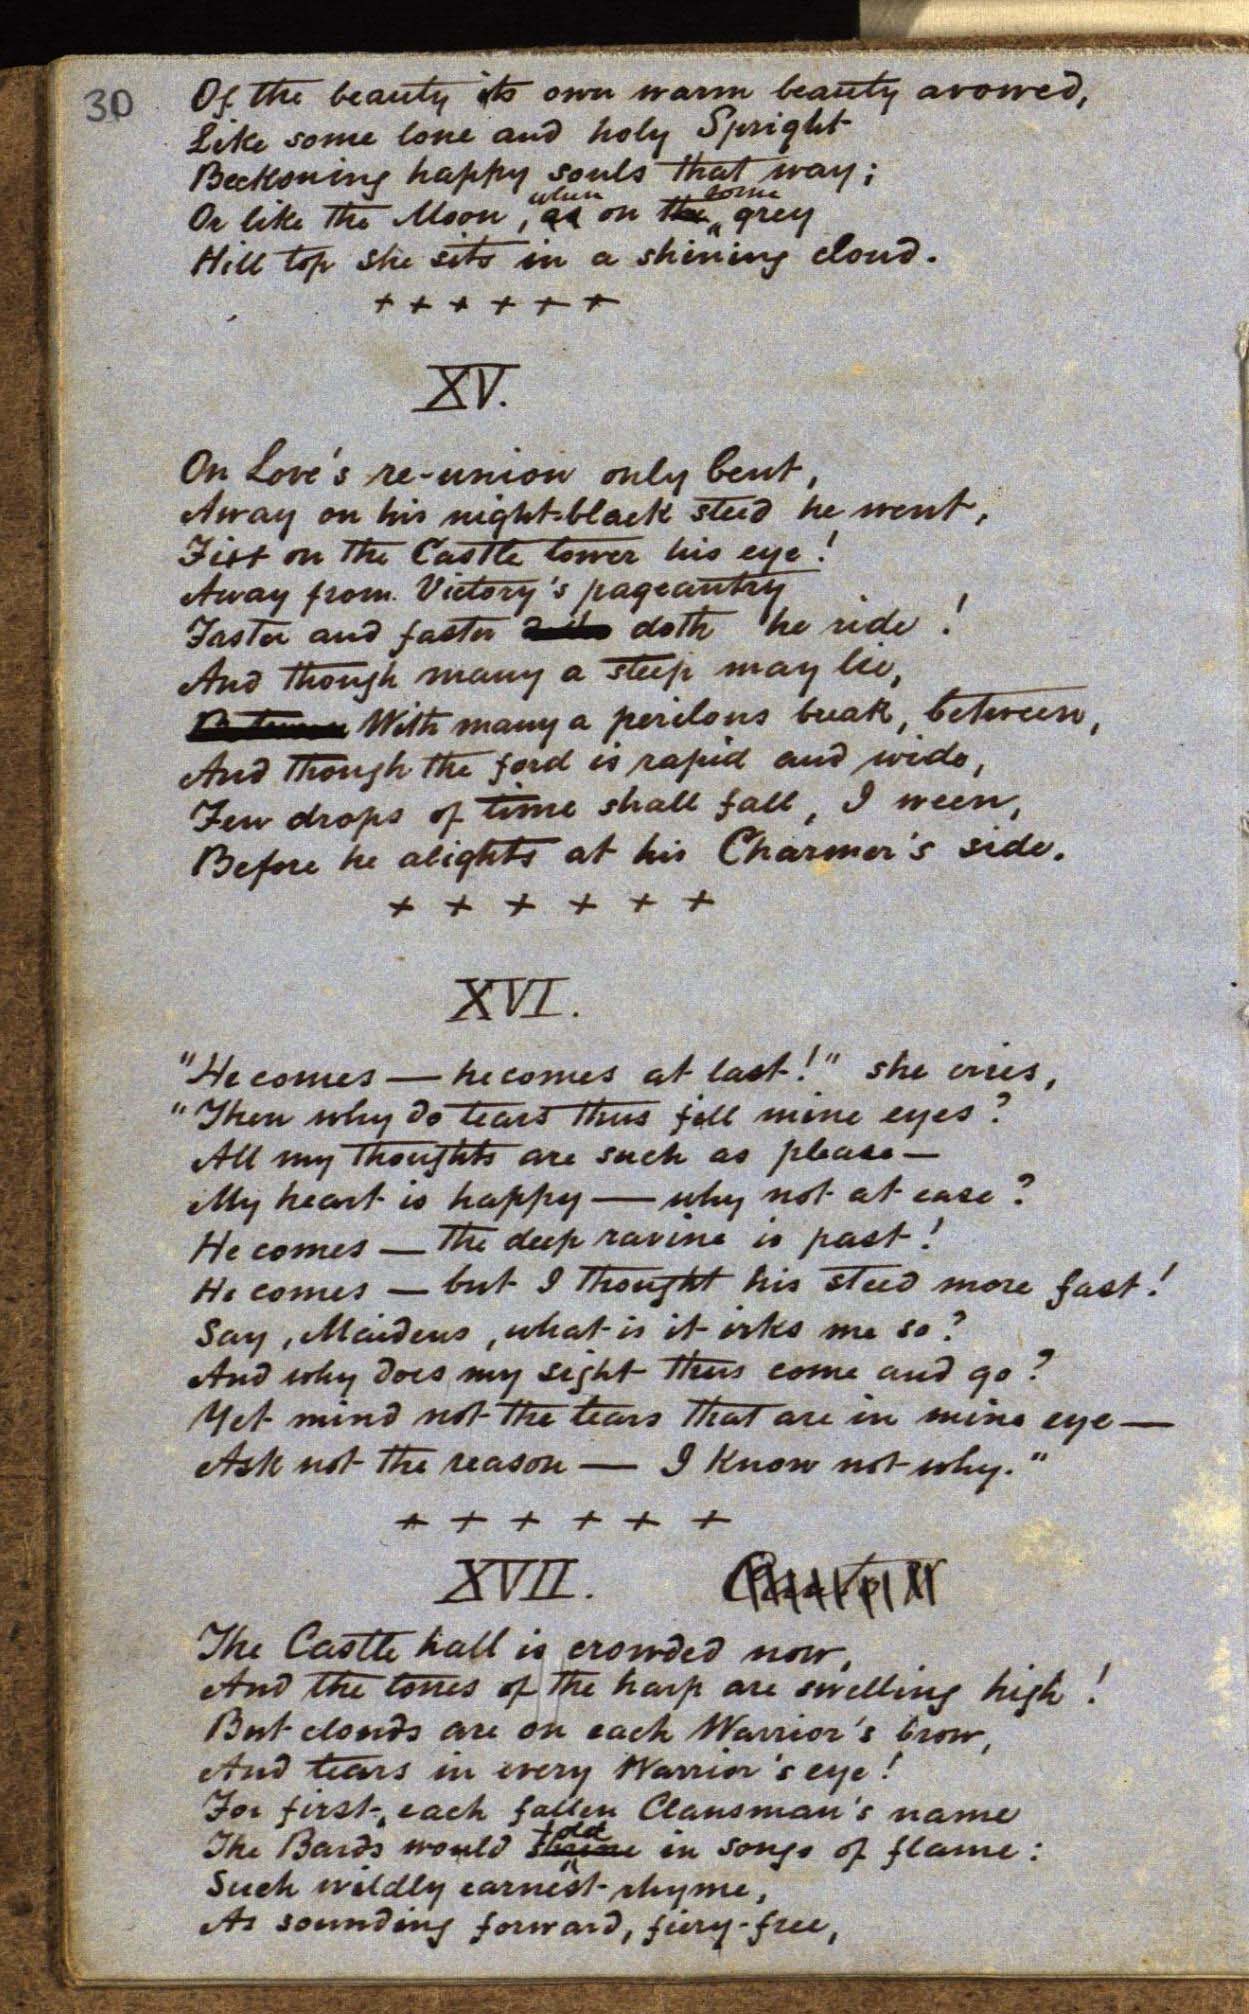 30
Of the beauty its own warm beauty avowed,
Like some lone and holy Spright
Beckoning happy souls that way;
Or like the Moon, when on some grey
Hill top she sits in a shining cloud.
+ + + + + +
XV.
On Love's re-union only bent,
Away on his night-black steed he went,
Fixt on the Castle tower his eye!
Away from Victory's pageantry
Faster and faster doth he ride!
And though many a steep may lie,
With many a perilous break, between,
And though the ford is rapid and wide,
Few drops of time shall fall, I ween,
Before he alights at his Charmer's side.
+ + + + + +
XVI.
"He comes — he comes at last!" she cries,
"Then why do tears thus fill mine eyes?
All my thoughts are such as please —
My heart is happy — why not at ease?
He comes — the deep ravine is past!
He comes — but I thought his steed more fast!
Say, Maidens, what is it irks me so?
And why does my sight thus come and go?
Yet mind not the tears that are in mine eye —
Ask not the reason — I know not why."
+ + + + + +
XVII.
The Castle hall is crowded now,
And the tones of the harp are swelling high!
But clouds are on each Warrior's brow,
And tears in every Warrior's eye!
For first, each fallen Clansman's name
The Bards would fold in songs of flame:
Such wildly earnest rhyme,
As sounding forward, fiery-free,